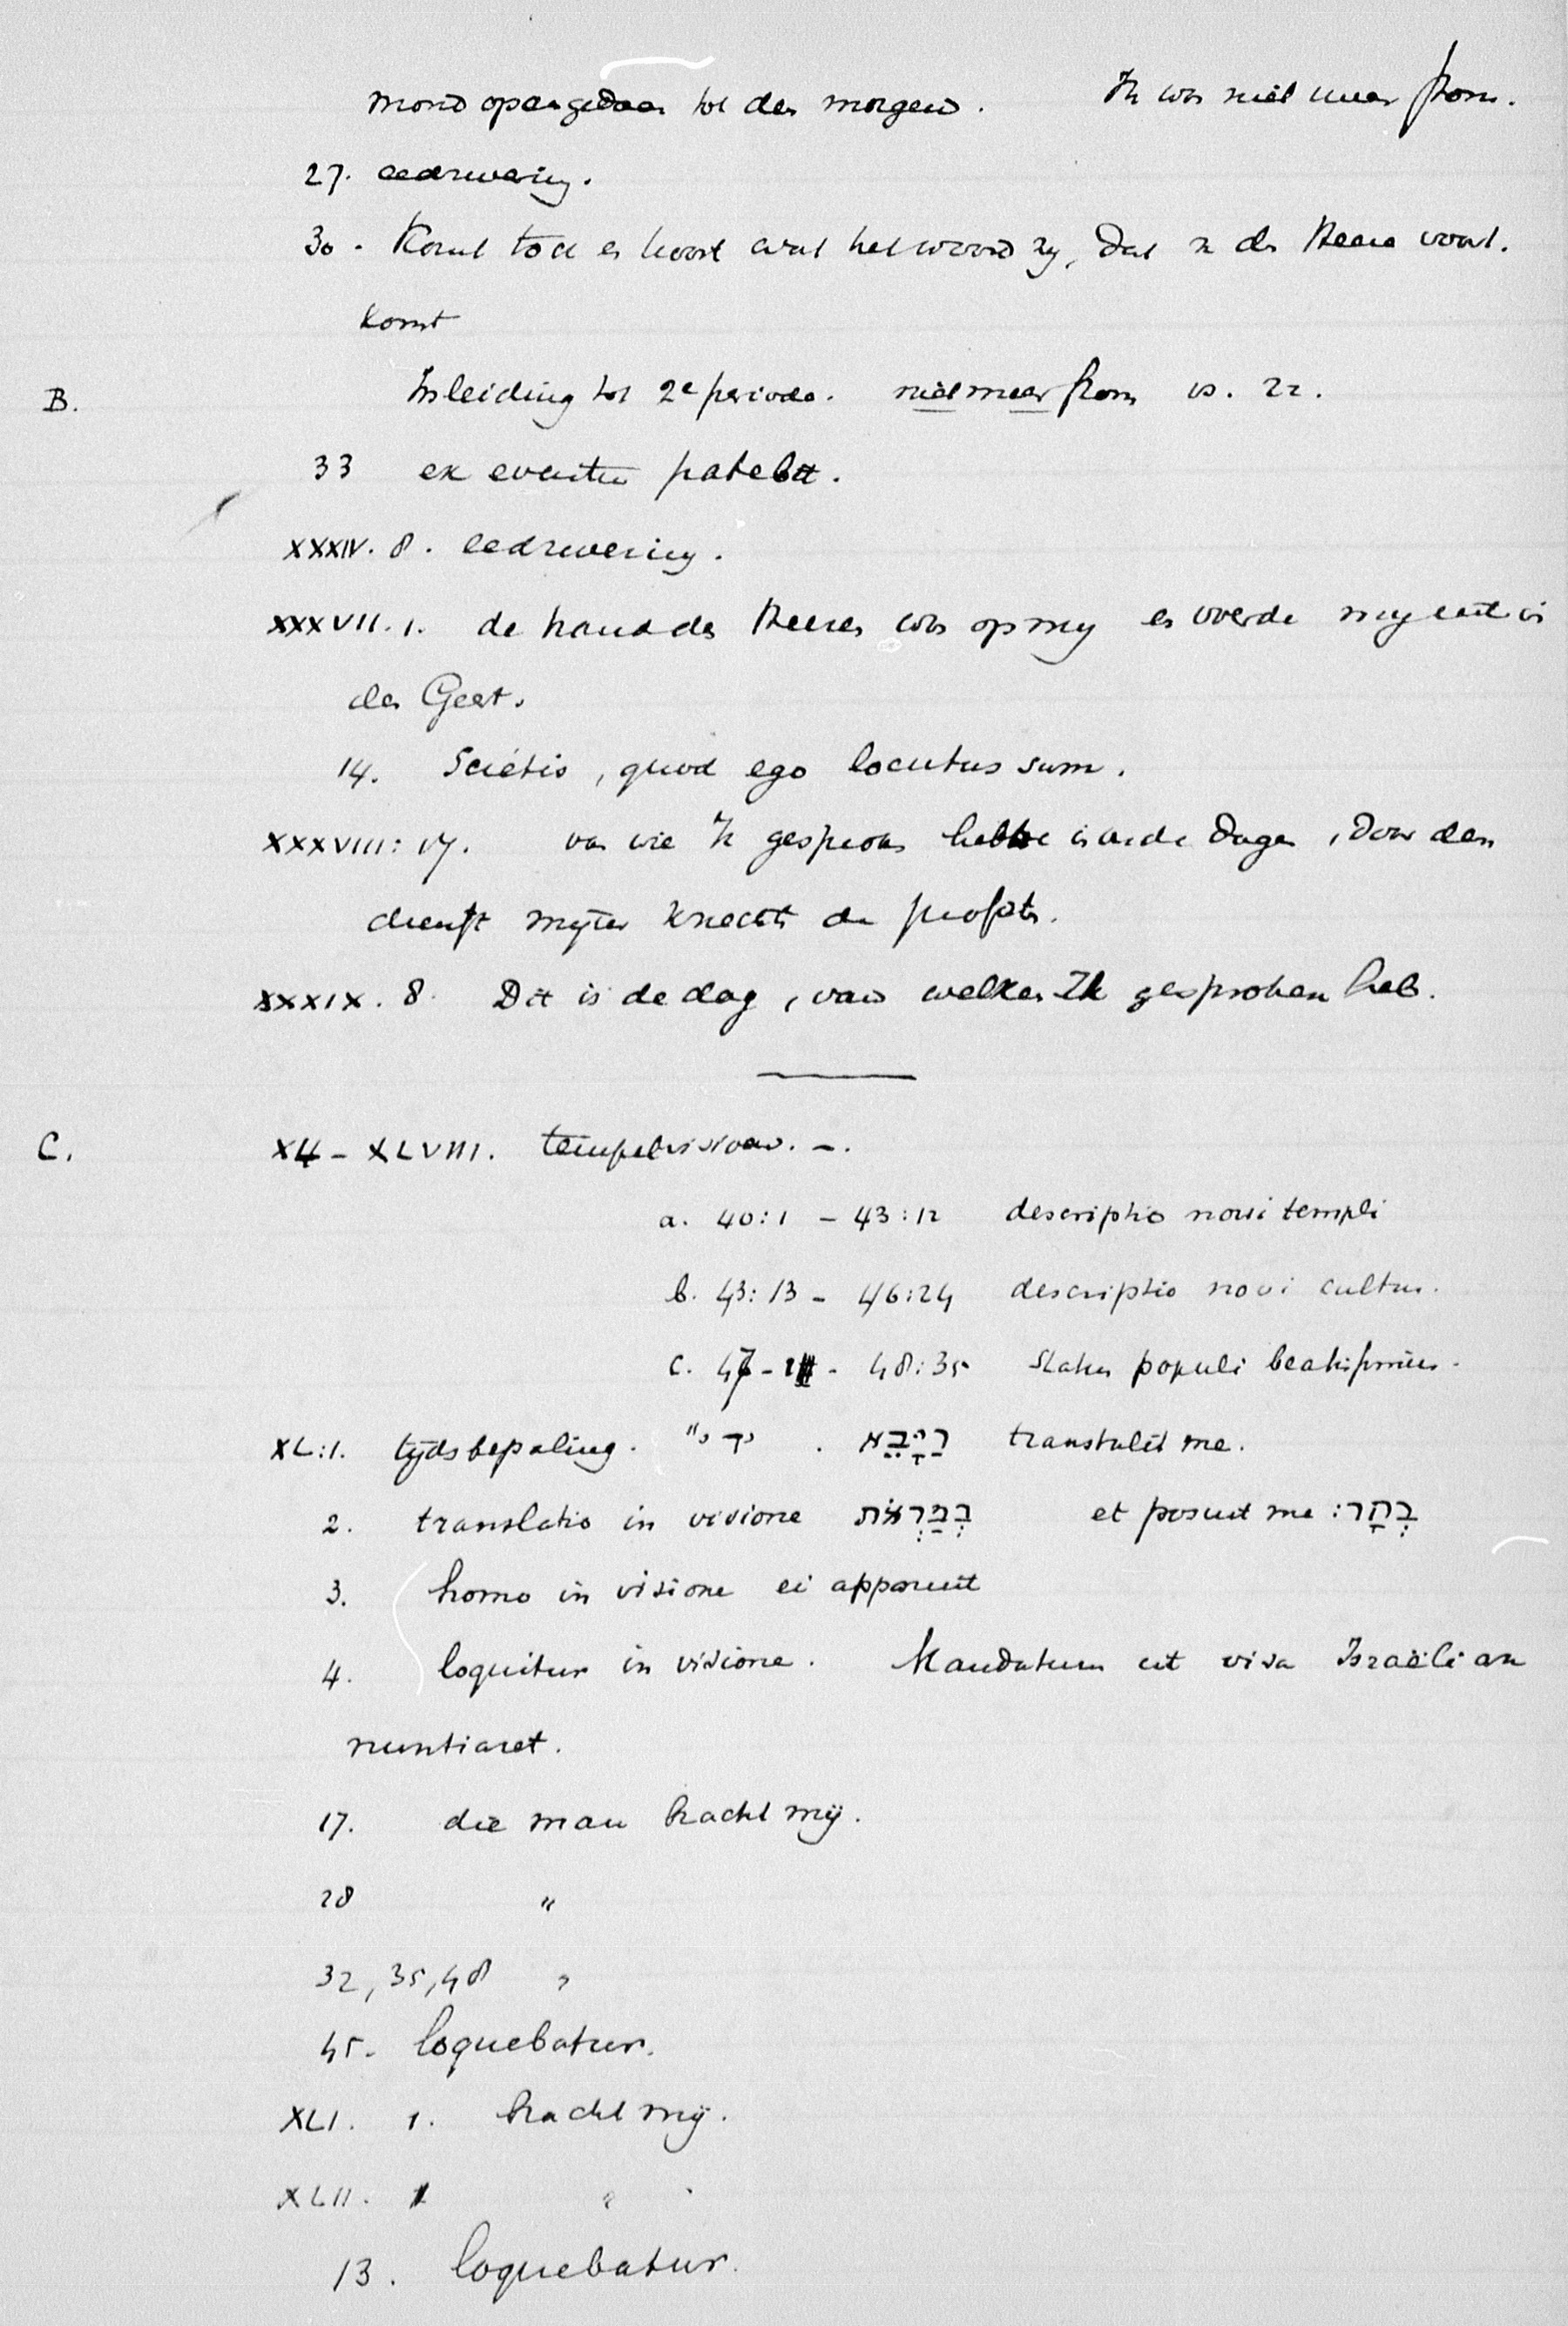 mond opengedaan tot den morgen. Ik was niet meer stom.
27. eedzwering.
30. Komt toch en hoort wat het woord zij, dat v. den Heere voort.
komt
B. Inleiding tot 2e periode. niet meer stom vs. 22.
33 ex eventu patebit.
XXXIV. 8. eedzwering.
XXXVII. 1. de hand des Heeren was op mij en voerde mij uit in
den Geest.
14. Scietis, quod ego locutus sum.
XXXVIII: 17. van wie Ik gesproken hebbe in oude dagen, door den
dienst mijner knechten de profeten.
XXXIX. 8. Dit is de dag, van welken Ik gesproken heb.
C. XL – XLVIII. tempelvisioen. –.
a. 40:1 – 43:12 descriptio novi templi
b. 43:13 – 46:24 descriptio novi cultus.
c. 47 - 1 - 48:35 status populi beatissimus.
XL:1. tijdsbepaling. יד י״י . וַיָּבֵא transtulit me.
2. translatio in visione בְּמַרְאוֹת et posuit me : בְּהַר
3. homo in visione ei apparuit
4. loquitur in visione. Mandatum ut visa Israëli an
nuntiaret.
17. die man bracht mij.
28 "
32, 35, 48 "
45. loquebatur.
XLI. 1. bracht mij.
XLII. 1 "
13. loquebatur.